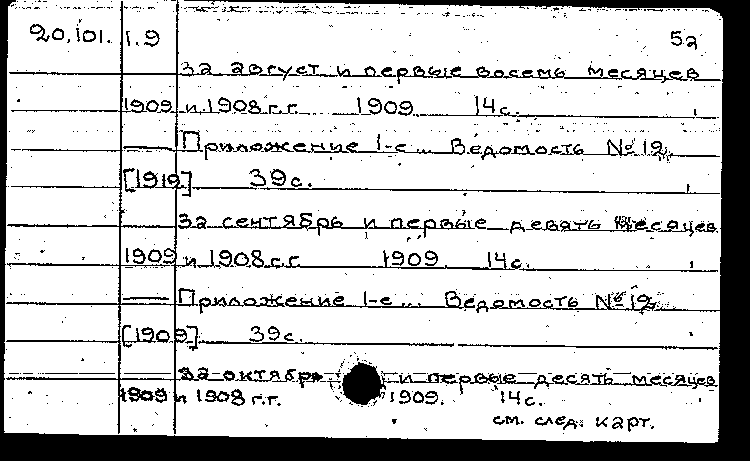 20.101. 1.9 52
за август и первые восемь месяцев
1909 и 1908 г.г. 1909 14с.
— Приложение 1-е... Ведомость № 12.
[1919] 39с.
за сентябрь и первые девять месяцев
1909 и 1908 г.г. 1909. 14с.
— Приложение 1-е... Ведомость № 12.
[1909] 39с.
за октябрь и первые десять месяцев
1909 и 1908 г.г. 1909. 14с.
см. след. карт.